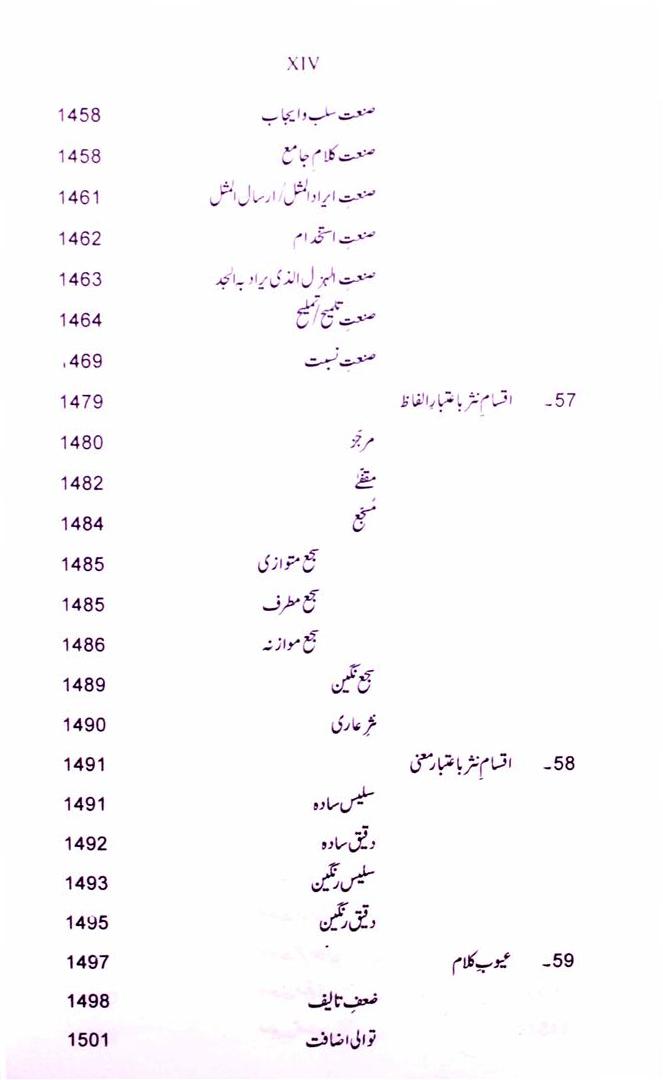 XIV
صنعت سلب و ایجاب 1458
صنعت کلام جامع 1458
صنعتِ ایراد المثل/ارسال المثل 1461
صنعتِ استخدام 1462
صنعتِ الہزل الذی یراد بہ الجد 1463
صنعتِ تلمیح/تملیح 1464
صنعتِ نسبت 1469
57۔ اقسامِ نثر باعتبارِ الفاظ 1479
مرجّز 1480
مقفّےٰ 1482
مُسجّع 1484
سجع متوازی 1485
سجع مطرف 1485
سجع موازنہ 1486
سجع نگین 1489
نثرِ عاری 1490
58۔ اقسامِ نثر باعتبار معنی 1491
سلیس سادہ 1491
دقیق سادہ 1492
سلیس رنگین 1493
دقیق رنگین 1495
59۔ عیوبِ کلام 1497
ضعفِ تالیف 1498
توالی اضافت 1501